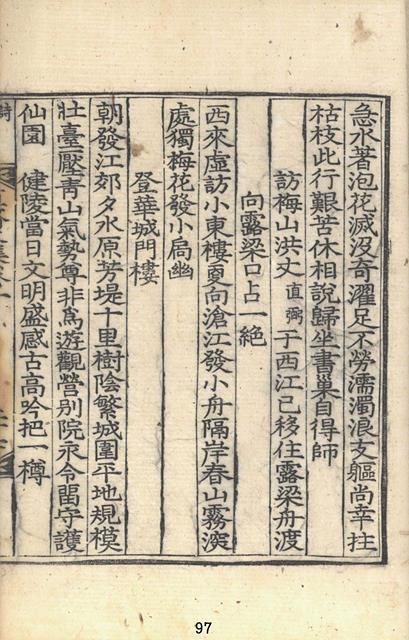 急水著泡花滅沒奇濯足不勞濡濁浪支軀尚幸拄
枯枝此行艱苦休相說歸坐書巢自得師
訪梅山洪丈直弼于西江已移住露梁舟渡
向露梁口占一絶
西來虛訪小東樓夏向滄江發小舟隔岸春山霧深
處獨梅花發小局幽
登華城門樓
朝發江郊夕水原芳堤十里樹陰繁城圍平地規模
壯臺壓靑山氣勢尊非爲遊觀營别院永令畱守護
仙園 健陵當日文明盛感古高吟把一樽
詩
97